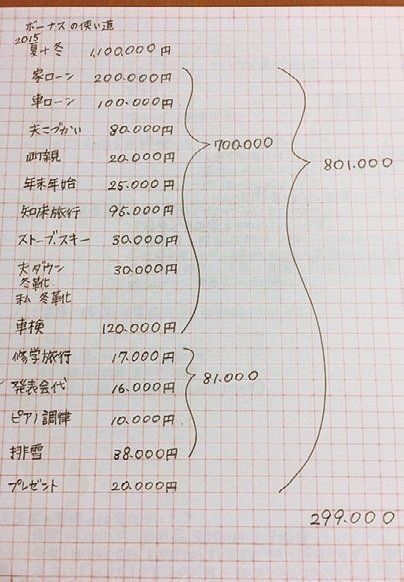 ボーナスの使い道
2015
夏+冬 1,100.000円
家ローン 200.000円
車ローン 100.000円
夫こづかい 80.000円
両親 20.000円
年末年始 25.000円
知床旅行 95.000円
ストーブ.スキー 30.000円
夫ダウン 30.000円
冬靴
私 冬靴
車検 120.000円
700.000
801.000
修学旅行 17.000円
発表会代 16.000円
ピアノ調律 10.000円
排雪 38.000円
81.000
プレゼント 20.000円
299.000